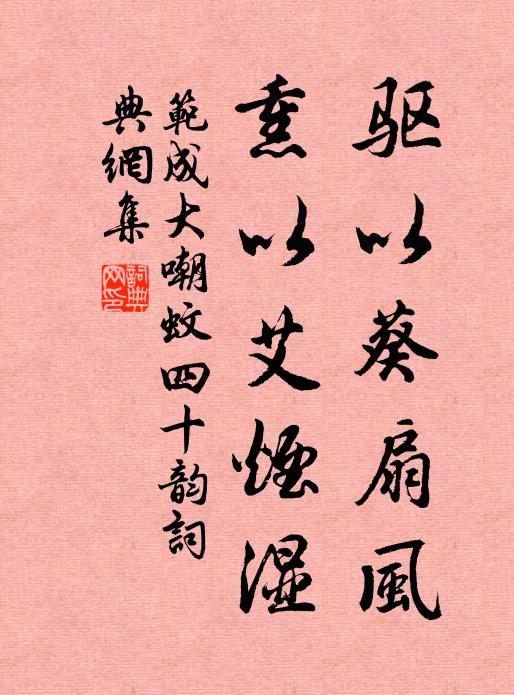 驱以葵扇風
熏以艾煙湿
範成大嘲蚊四十韵詞
典網集
詞典网印